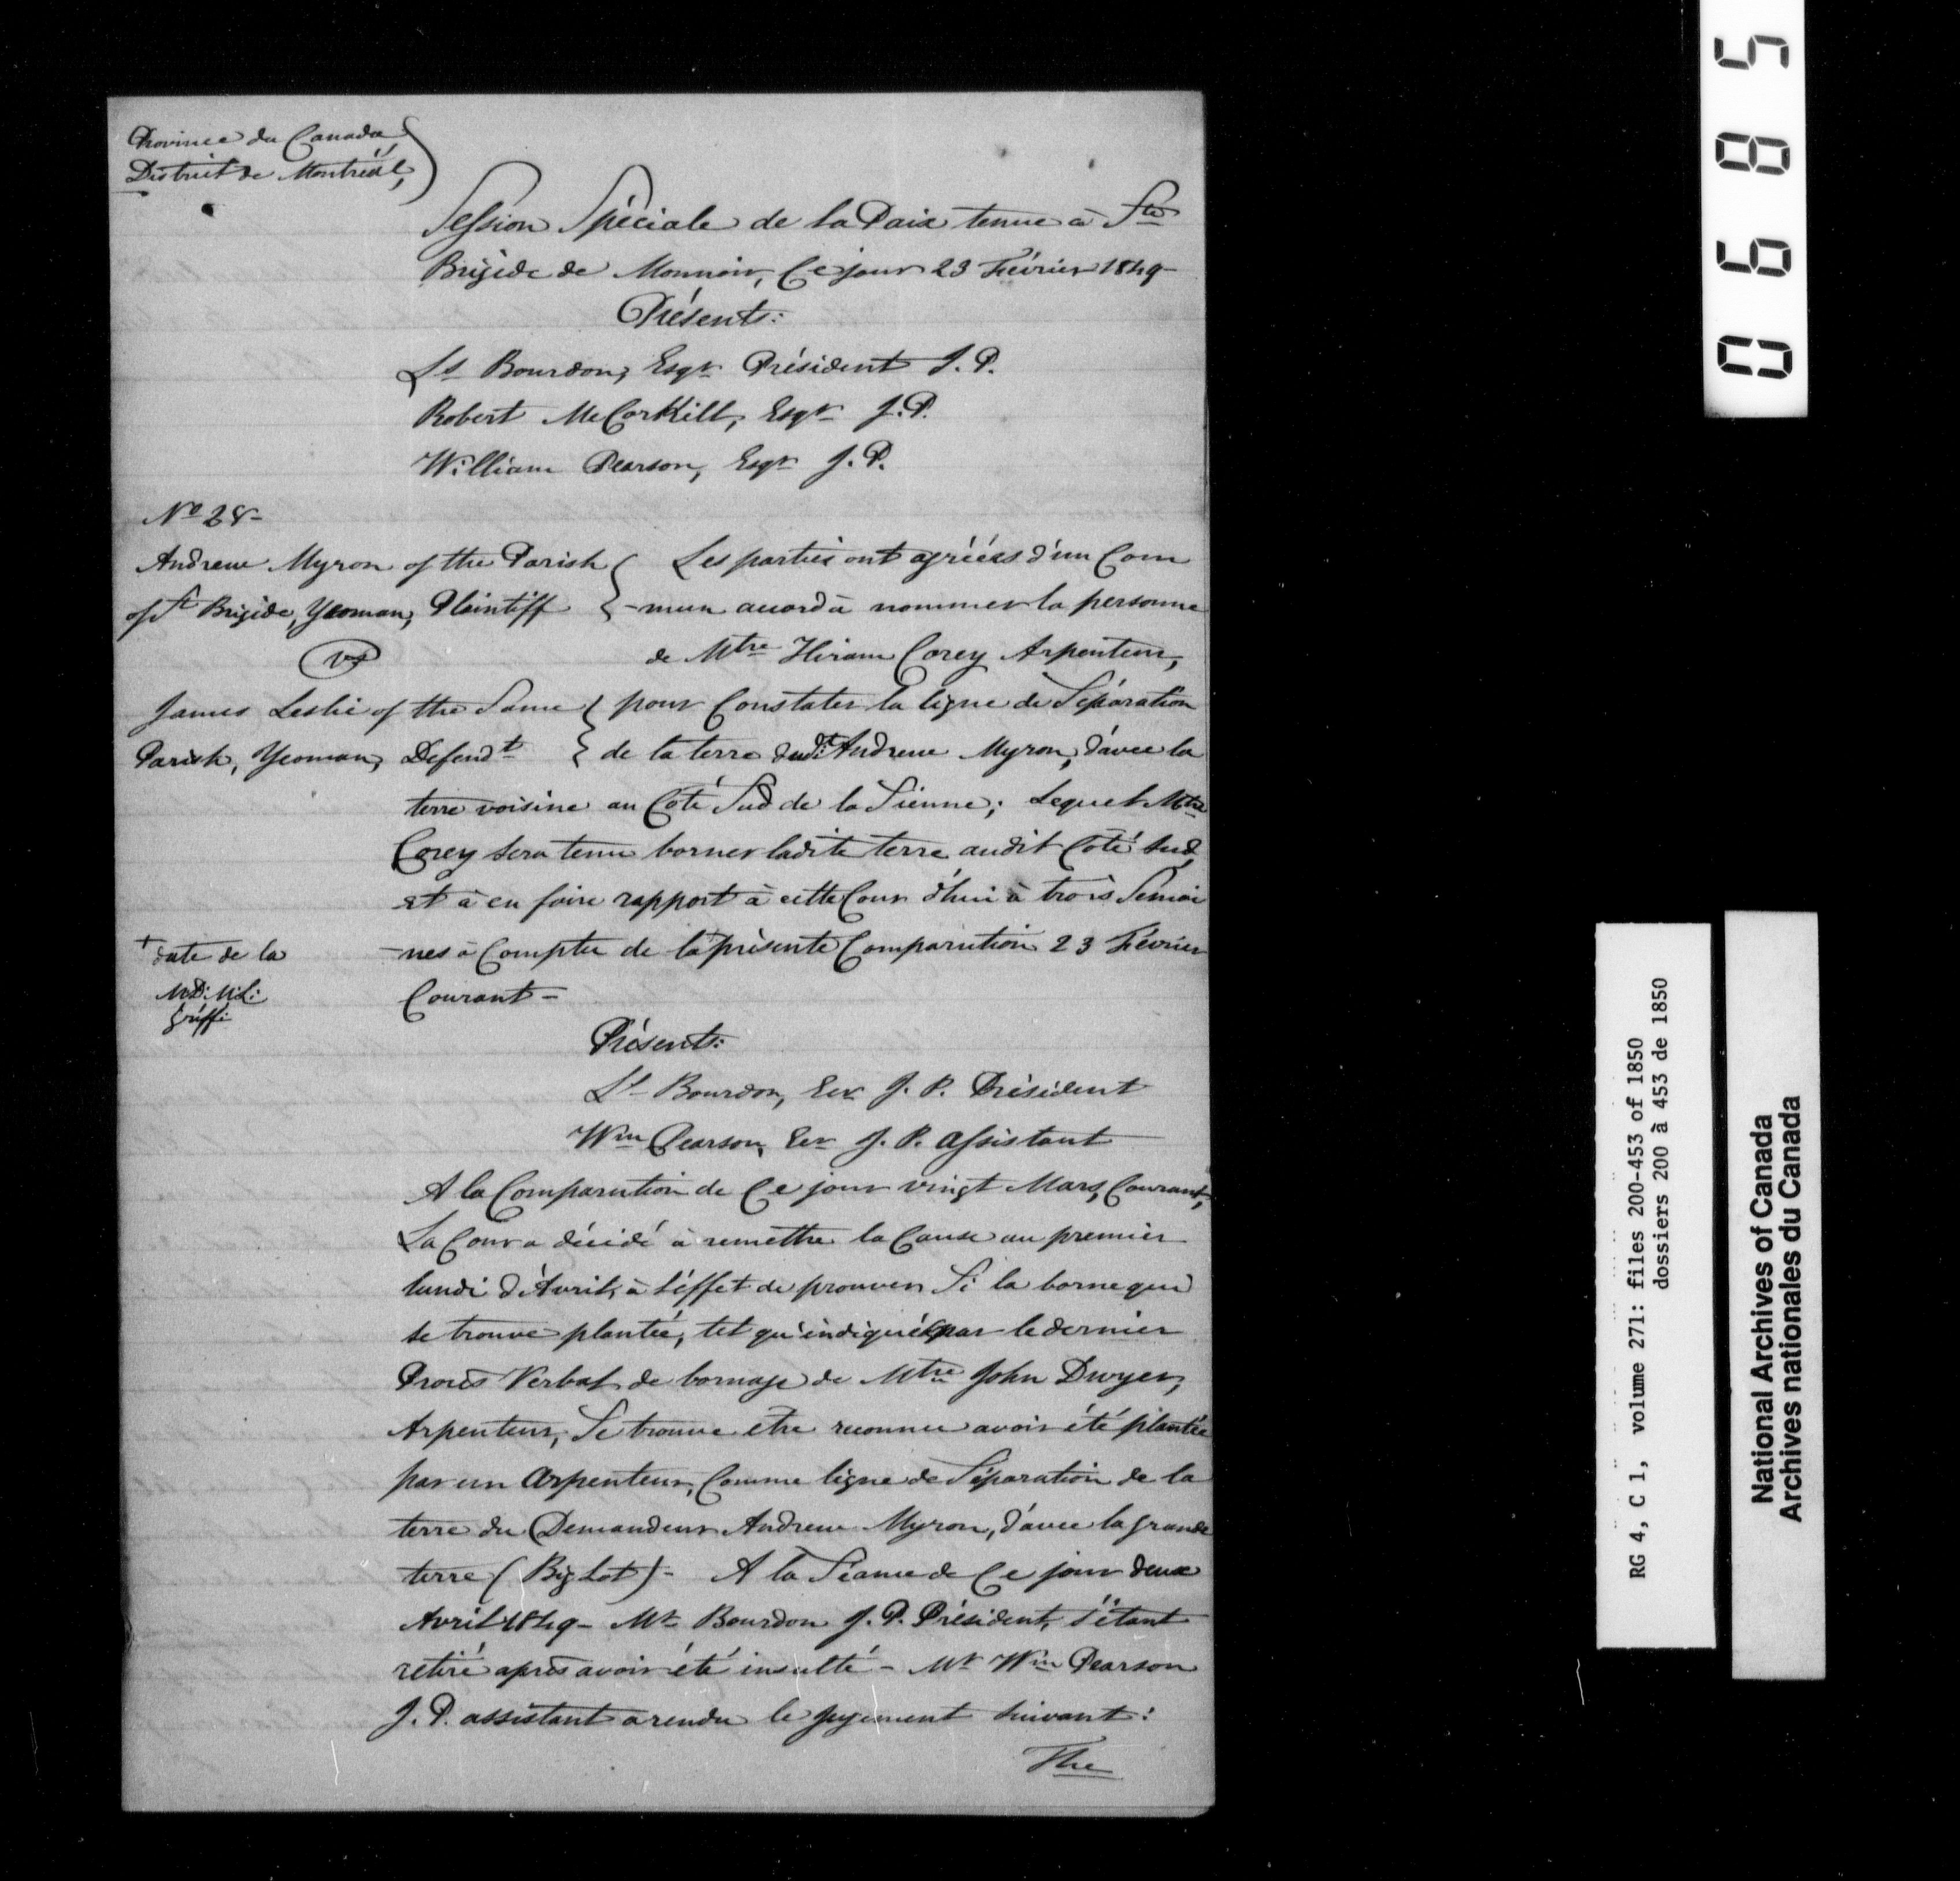 Province du Canada
District de Montréal,
Session Spéciale de la Paix tenue à Ste
Brigide de Monnoir, Ce jour 23 Février 1849-
Présents:
Ls Bourdon, Esqr Président J.P.
Robert McCorkill, Esqr J.P.
William Pearson, Esqr J.P.
No 28-
Andrew Myron of the Parish
of St Brigide, Yeoman, Plaintiff
vs
James Leslie of the Same
Parish, Yeoman, Defendt
Les parties ont agréés d'un Com
-mun accord à nommer la personne
de Mtre Hiram Corey Arpenteur,
pour Constater la ligne de Séparation
de la terre dudit Andrew Myron, d'avec la
terre voisine au Coté Sud de la Sienne; Lequel Mtre
Corey sera tenu borner ladite terre audit Coté Sud,
et à en faire rapport à cette Cour d'hui à trois Semai
-nes à Compter de la + présente Comparution 23 Février
Courant-
+ date de la
M.D. M.L.
Greff:
Présents:
Ls Bourdon, Ecr J. P. Président
Wm Pearson, Ecr J. P. assistant
A la Comparution de Ce jour vingt Mars, Courant,
La Cour a décidé à remettre la Cause au premier
lundi d'Avril, à l'éffet de prouver Si la borne qui
se trouve plantée, tel qu'indiquée par le dernier
Procès Verbal de bornage de Mtre John Dwyer,
Arpenteur, Se trouve etre reconnue avoir été plantée
par un Arpenteur, Comme ligne de Séparation de la
terre du Demandeur Andrew Myron, d'avec la grande
terre (Big Lot)- A la Séance de Ce jour deux
Avril 1849- Mr Bourdon J.P. Président, s'étant
retiré après avoir été insulté- Mr Wm Pearson
J.P. assistant a rendu le jugement Suivant:
The
06985
RG 4, C 1, volume 271: files 200-453 of 1850
dossiers 200 à 453 de 1850
National Archives of Canada
Archives nationales du Canada